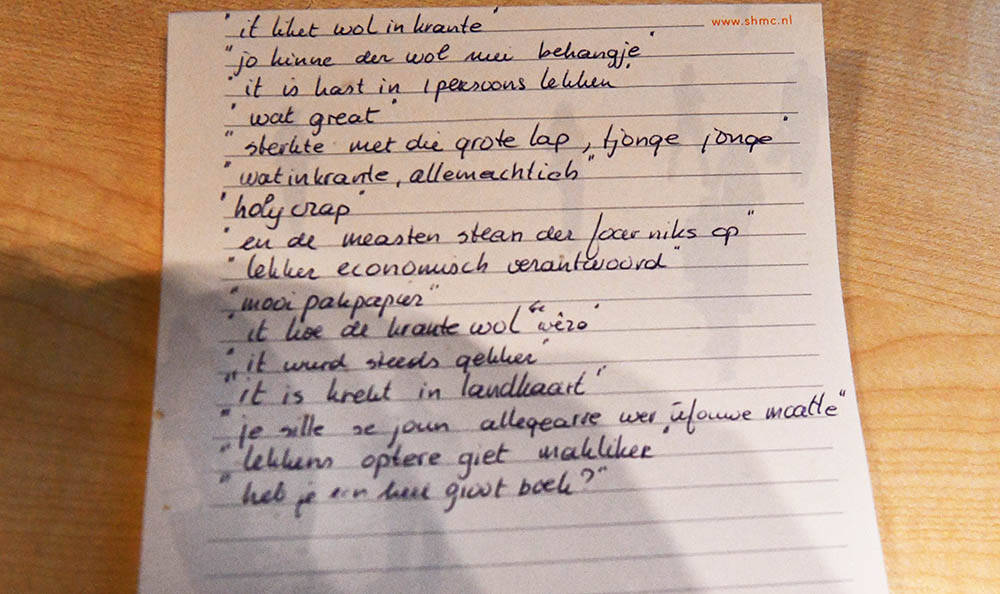 www.shmc.nl
"it liket wol in krante"
"jo kinne der wol mei behangje"
"it is hast in 1 persoons lekken"
"wat great"
"sterkte met die grote lap, tjonge jonge"
"wat in krante, allemachtich"
"holy crap"
"en de measten stean der foar niks op"
"lekker economisch verantwoord"
"mooi pakpapier"
"it koe de krante wol wêze"
"it wurd steeds gekker"
"it is krekt in landkaart"
"je sille se joun allegearre wer úfouwe moatte"
"lekkens optere giet makliker"
"heb je een heel groot boek?"